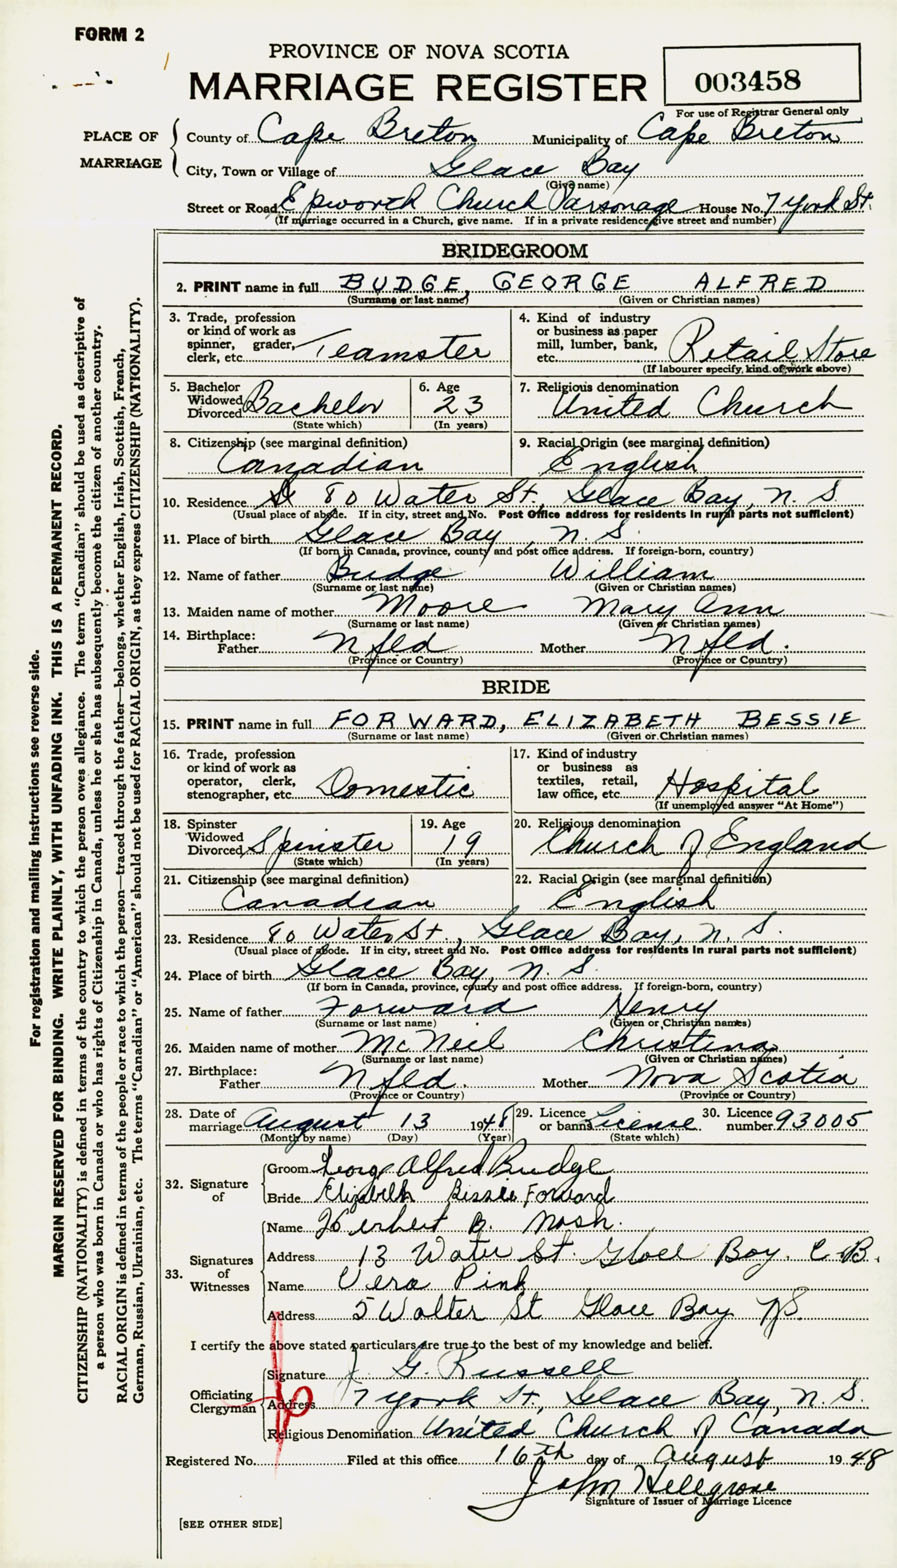 FORM 2
PROVINCE OF NOVA SCOTIA
MARRIAGE REGISTER
003458
For use of Registrar General only
PLACE OF MARRIAGE
County of Cape Breton Municipality of Cape Breton
City, Town or Village of Glace Bay
(Give name)
Street or Road Epworth Church Parsonage House No. 7 York St.
(If marriage occurred in a Church, give name. If in a private residence, give street and number)
BRIDEGROOM
2. PRINT name in full BUDGE, GEORGE ALFRED
(Surname or last name) (Given or Christian names)
3. Trade, profession or kind of work as spinner, grader, clerk, etc. Teamster
4. Kind of industry or business as paper mill, lumber, bank, etc. Retail Store
(If labourer specify, kind of work above)
5. Bachelor Widowed Divorced Bachelor
(State which)
6. Age 23
(In years)
7. Religious denomination United Church
8. Citizenship (see marginal definition) Canadian
9. Racial Origin (see marginal definition) English
10. Residence 80 Water St., Glace Bay, N. S.
(Usual place of abode. If in city, street and No. Post Office address for residents in rural parts not sufficient)
11. Place of birth Glace Bay, N. S.
(If born in Canada, province, county and post office address. If foreign-born, country)
12. Name of father Budge William
(Surname or last name) (Given or Christian names)
13. Maiden name of mother Moore Mary Ann
(Surname or last name) (Given or Christian names)
14. Birthplace: Father Nfld Mother Nfld.
(Province or Country) (Province or Country)
BRIDE
15. PRINT name in full FORWARD, ELIZABETH BESSIE
(Surname or last name) (Given or Christian names)
16. Trade, profession or kind of work as operator, clerk, stenographer, etc. Domestic
17. Kind of industry or business as textiles, retail, law office, etc. Hospital
(If unemployed answer "At Home")
18. Spinster Widowed Divorced Spinster
(State which)
19. Age 19
(In years)
20. Religious denomination Church of England
21. Citizenship (see marginal definition) Canadian
22. Racial Origin (see marginal definition) English
23. Residence 80 Water St., Glace Bay, N. S.
(Usual place of abode. If in city, street and No. Post Office address for residents in rural parts not sufficient)
24. Place of birth Glace Bay, N. S.
(If born in Canada, province, county and post office address. If foreign-born, country)
25. Name of father Forward Henry
(Surname or last name) (Given or Christian names)
26. Maiden name of mother McNeil Christina
(Surname or last name) (Given or Christian names)
27. Birthplace: Father Nfld. Mother Nova Scotia
(Province or Country) (Province or Country)
28. Date of marriage August 13 1948
(Month by name) (Day) (Year)
29. Licence or banns License
(State which)
30. Licence number 93005
32. Signature of
Groom George Alfred Budge
Bride Elizabeth Bessie Forward
33. Signatures of Witnesses
Name Herbert B. Nash.
Address 13 Water St. Glace Bay. C. B.
Name Vera Pink
Address 5 Walter St Glace Bay NS.
I certify the above stated particulars are true to the best of my knowledge and belief.
Officiating Clergyman
Signature J. G. Russell
Address 7 York St., Glace Bay, N. S.
Religious Denomination United Church of Canada
Registered No. Filed at this office 16th day of August 1948
John Hellgrove
Signature of Issuer of Marriage Licence
[SEE OTHER SIDE]
For registration and mailing instructions see reverse side.
MARGIN RESERVED FOR BINDING. WRITE PLAINLY, WITH UNFADING INK. THIS IS A PERMANENT RECORD.
CITIZENSHIP (NATIONALITY) is defined in terms of the country to which the person owes allegiance. The term "Canadian" should be used as descriptive of
a person who was born in Canada or who has rights of Citizenship in Canada, unless he or she has subsequently become the citizen of another country.
RACIAL ORIGIN is defined in terms of the people or race to which the person—traced through the father—belongs, whether English, Irish, Scottish, French,
German, Russian, Ukrainian, etc. The terms "Canadian" or "American" should not be used for RACIAL ORIGIN, as they express CITIZENSHIP (NATIONALITY).